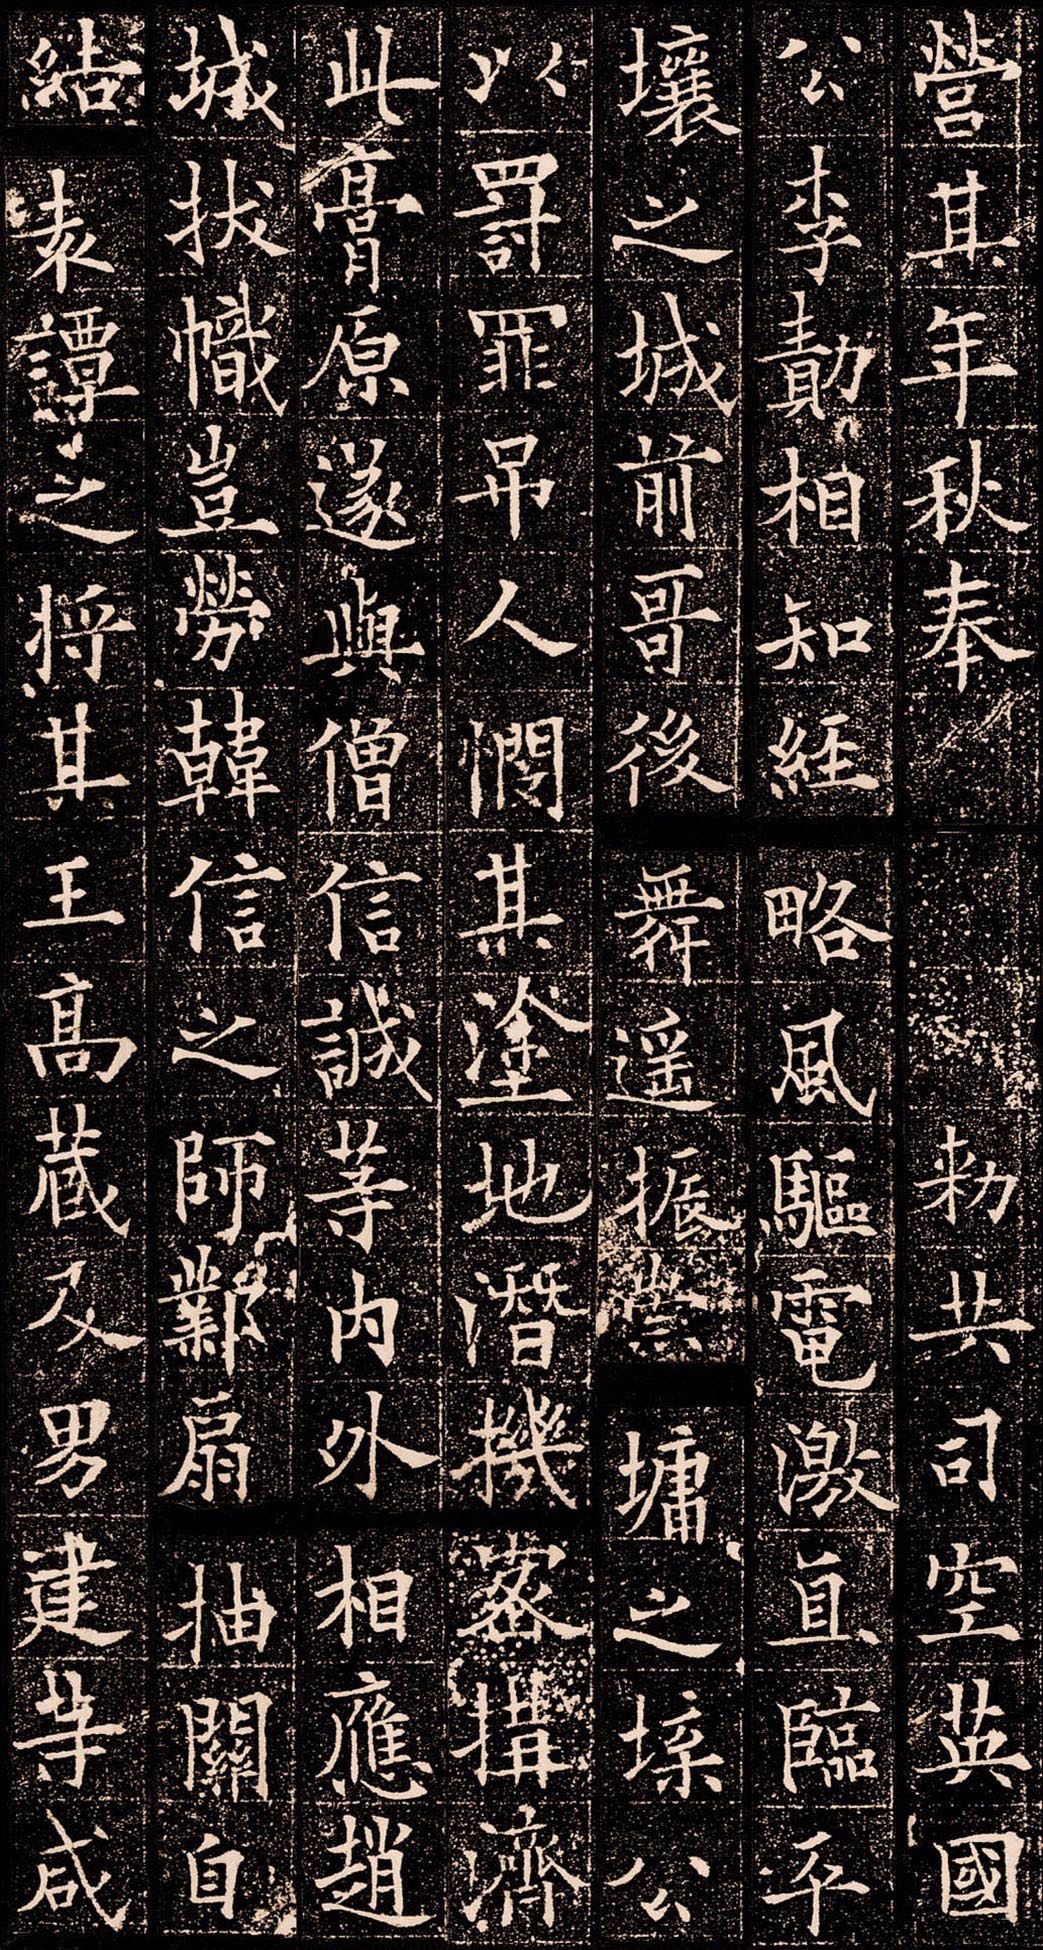 營其年秋奉勅共司空英國
公李勣相知經略風驅電激直臨平
壤之城前哥後舞遥振崇墉之堞公
以罰罪吊人憫其塗地潛機密構濟
此膏原遂與僧信誠等内外相應趙
城拔幟豈勞韓信之師鄴扇抽關自
結袁譚之將其王高藏及男建等咸